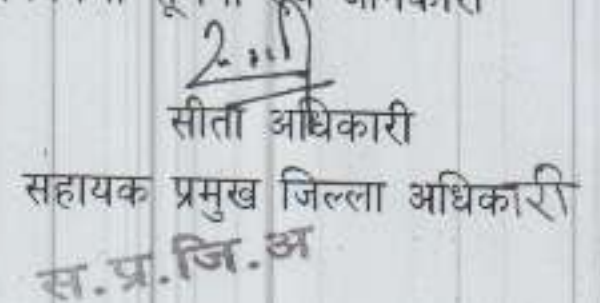 जानकारी
सीता अधिकारी
सहायक प्रमुख जिल्ला अधिकारी
स.प्र.जि.अ